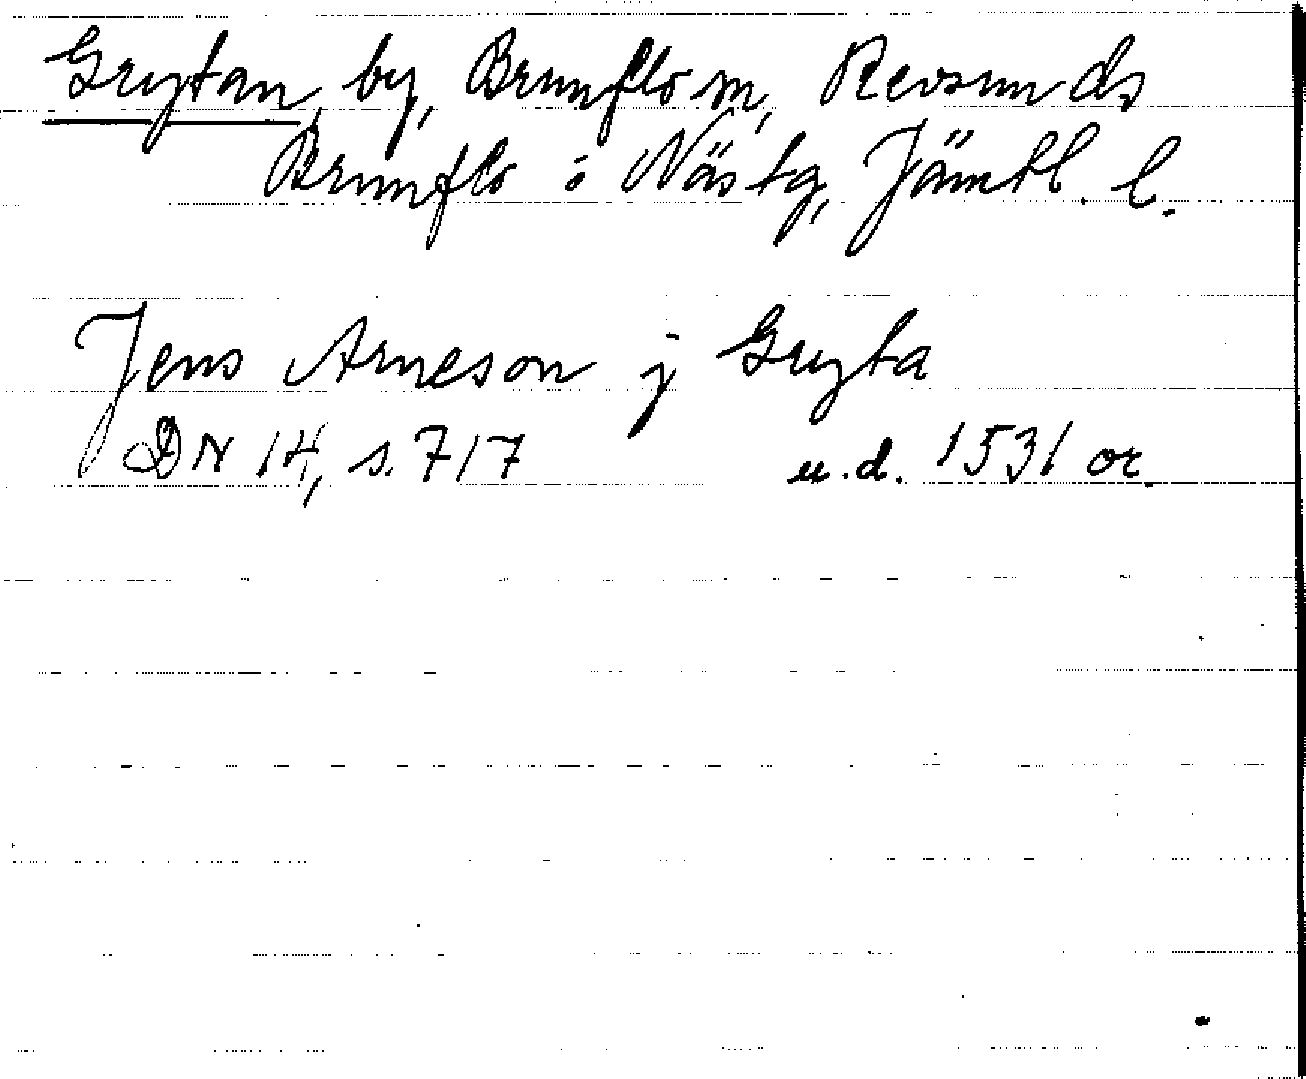 Grytan, by, Brunflo sn, Revsunds
Brunflo o Näs tg, Jämtl. l.
Jens Arneson j Gryta
DN 14, s. 717 u.d. 1531 or.